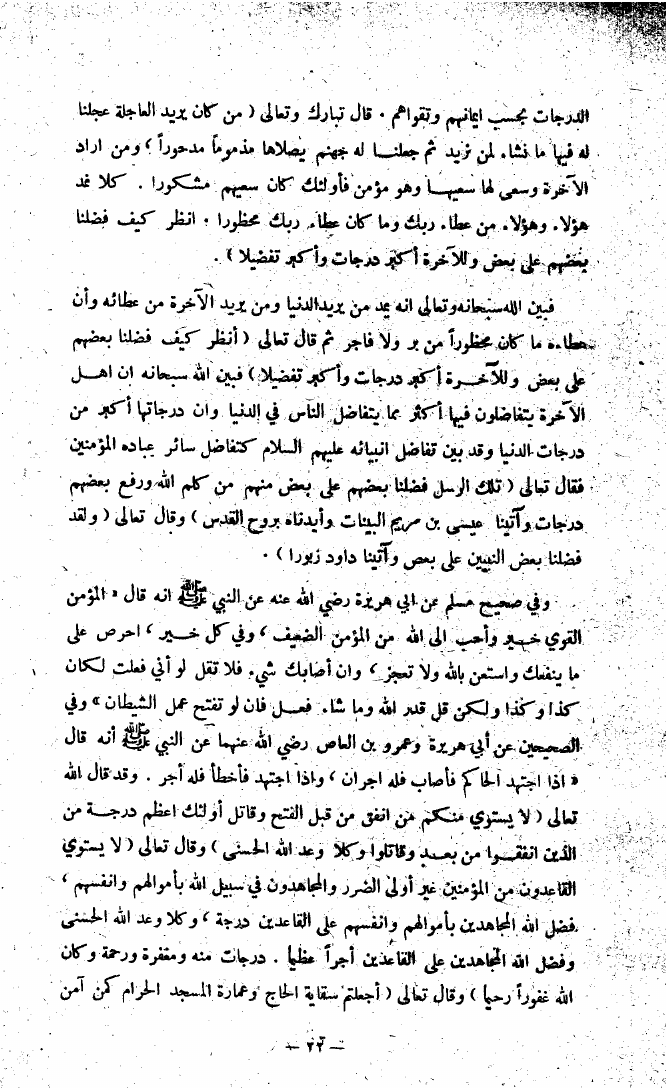 الدرجات بحسب ايمانهم وتقواهم . قال تبارك وتعالى ( من كان يريد العاجلة عجلنا
له فيها ما نشاء لمن نريد ثم جعلنا له جهنم يصلاها مذموماً مدحوراً ، ومن اراد
الآخرة وسعى لها سعيها وهو مؤمن فأولئك كان سعيهم مشكورا . كلا نمد
هؤلاء وهؤلاء من عطاء ربك وما كان عطاء ربك محظورا . انظر كيف فضلنا
بعضهم على بعض وللآخرة أكبر درجات وأكبر تفضيلا ) .
فبين الله سبحانه وتعالى انه يمد من يريد الدنيا ومن يريد الآخرة من عطائه وأن
عطاءه ما كان محظوراً من بر ولا فاجر ثم قال تعالى ( أنظر كيف فضلنا بعضهم
على بعض وللآخرة أكبر درجات وأكبر تفضيلا ) فبين الله سبحانه ان اهل
الآخرة يتفاضلون فيها أكثر مما يتفاضل الناس في الدنيا وان درجاتها أكبر من
درجات الدنيا وقد بين تفاضل انبيائه عليهم السلام كتفاضل سائر عباده المؤمنين
فقال تعالى ( تلك الرسل فضلنا بعضهم على بعض منهم من كلم الله ورفع بعضهم
درجات وآتينا عيسى بن مريم البينات وأيدناه بروح القدس ) وقال تعالى ( ولقد
فضلنا بعض النبيين على بعص وآتينا داود زبورا ) .
وفي صحيح مسلم عن ابي هريرة رضي الله عنه عن النبي ﷺ انه قال « المؤمن
القوي خير وأحب الى الله من المؤمن الضعيف ، وفي كل خير ، احرص على
ما ينفعك واستعن بالله ولا تعجز ، وان أصابك شيء فلا تقل لو أني فعلت لكان
كذا وكذا ولكن قل قدر الله وما شاء فعل فان لو تفتح عمل الشيطان » وفي
الصحيحين عن أبي هريرة وعمرو بن العاص رضي الله عنهما عن النبي ﷺ أنه قال
« اذا اجتهد الحاكم فأصاب فله اجران ، واذا اجتهد فأخطأ فله أجر . وقد قال الله
تعالى ( لا يستوي منكم من انفق من قبل الفتح وقاتل أولئك اعظم درجة من
الذين انفقوا من بعد وقاتلوا وكلا وعد الله الحسنى ) وقال تعالى ( لا يستوي
القاعدون من المؤمنين غير أولي الضرر والمجاهدون في سبيل الله بأموالهم وانفسهم ،
فضل الله المجاهدين بأموالهم وانفسهم على القاعدين درجة ، وكلا وعد الله الحسنى
وفضل الله المجاهدين على القاعدين أجراً عظيما . درجات منه ومغفرة ورحمة وكان
الله غفوراً رحيما ) وقال تعالى ( أجعلتم سقاية الحاج وعمارة المسجد الحرام كمن آمن
— ٢٢ —